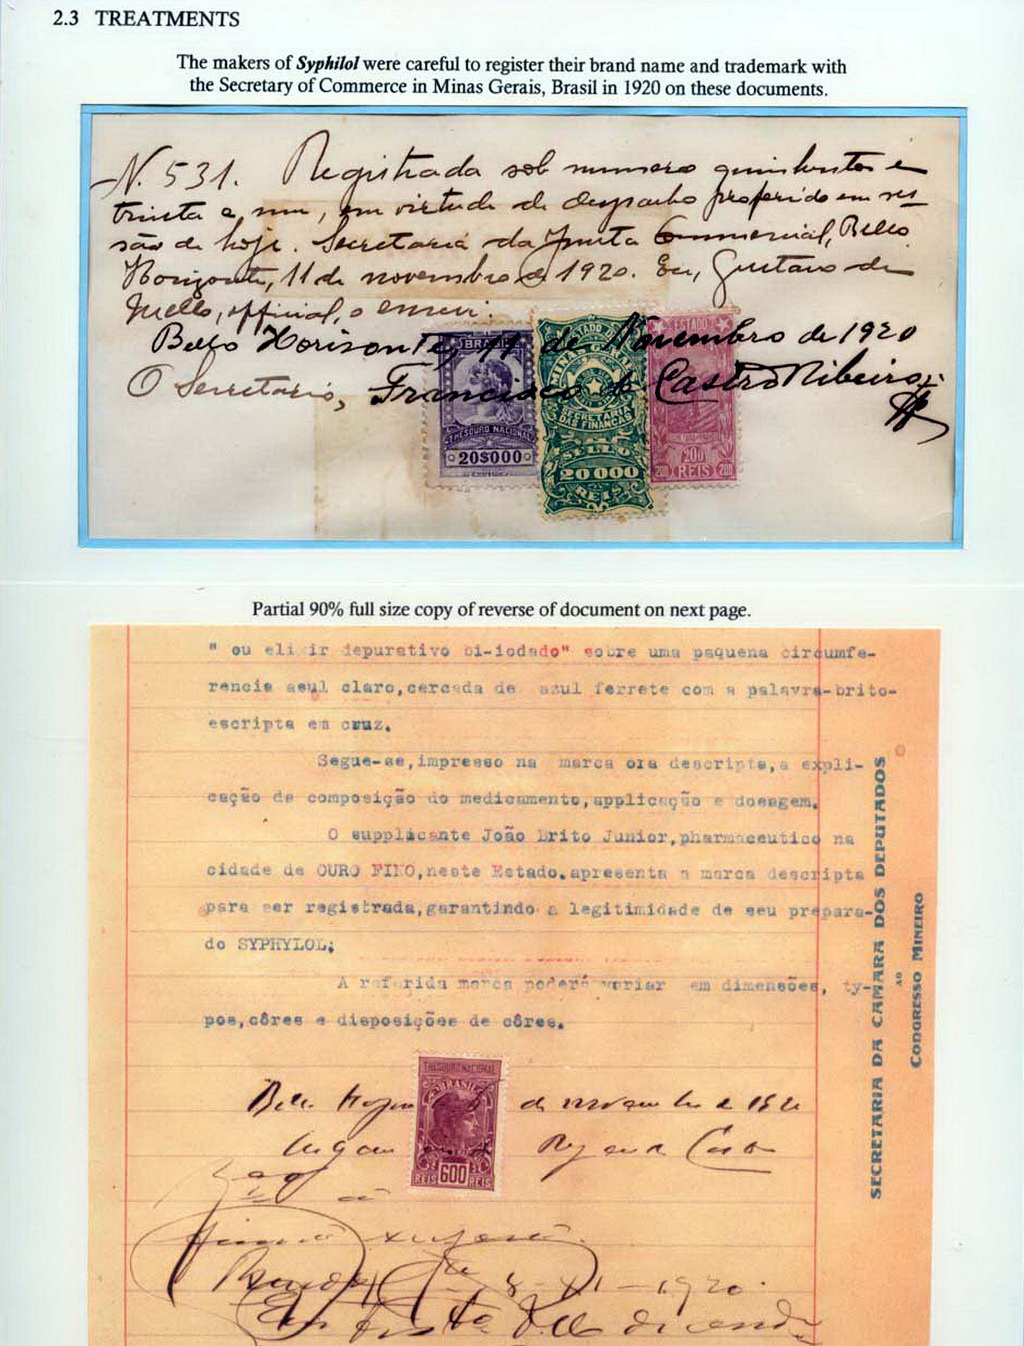 2.3 TREATMENTS
The makers of Syphilol were careful to register their brand name and trademark with
the Secretary of Commerce in Minas Gerais, Brasil in 1920 on these documents.
N. 531. Registrada sob numero quinhentos e
trinta e um, em virtude de despacho proferido em ses-
são de hoje. Secretaria da Junta Commercial, Bello
Horizonte, 11 de novembro de 1920. Eu, Gustavo de
Mello, official, o escrevi.
Bello Horisonte, 11 de Novembro de 1920
O Secretario, Francisco de Castro Ribeiro
BRASIL
THESOURO NACIONAL
20$000
ESTADO DE
MINAS GERAES
SECRETARIA
DAS FINANÇAS
SELLO
20000
REIS
ESTADO
200
200 REIS 200
Partial 90% full size copy of reverse of document on next page.
" ou elixir depurativo bi-iodado" sobre uma paquena circumfe-
rencia asul claro,cercada de azul ferrete com a palavra-brito-
escripta em cruz.
Segue-se,impresso na marca ora descripta,a expli-
cação de composição do medicamento,applicação e dosagem.
O supplicante João Brito Junior,pharmaceutico na
cidade de OURO FINO,neste Estado.apresenta a marca descripta
para ser registrada,garantindo a legitimidade de seu prepara-
do SYPHYLOL;
A referida marca poderá variar em dimensões, ty-
pos,côres e disposições de côres.
SECRETARIA DA CAMARA DOS DEPUTADOS
AO
CONGRESSO MINEIRO
THESOURO NACIONAL
BRASIL
REIS 600 REIS
de novembro de 1920
8-XI-1920.